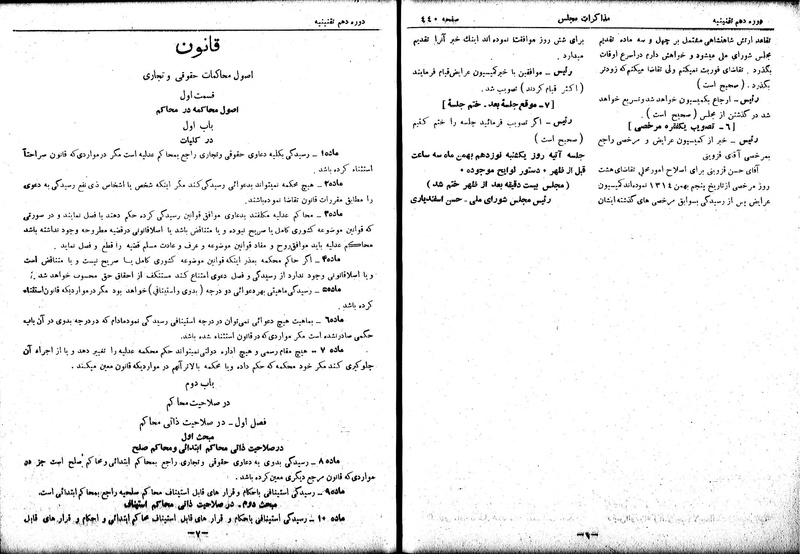 دوره دهم تقنینیه
مذاکرات مجلس
صفحه ۴۴۰
تقاعد ارتش شاهنشاهی مشتمل بر چهل و سه ماده تقدیم
مجلس شورای ملی میشود و خواهش دارم دراسرع اوقات
بگذرد . تقاضای فوریت نمیکنم ولی تقاضا میکنم که زودتر
بگذرد . ( صحیح است )
رئیس ــ ارجاع بکمیسیون خواهد شد و تسریع خواهد
شد در گذشتن از مجلس ( صحیح است ) .
[ ۶ ــ تصویب یکفقره مرخصی ]
رئیس ــ خبر از کمیسیون عرایض و مرخصی راجع
بمرخصی آقای قزوینی
آقای حسن قزوینی برای اصلاح امور محلی تقاضای هشت
روز مرخصی از تاریخ پنجم بهمن ۱۳۱۴ نموده‌اند کمیسیون
عرایض پس از رسیدگی بسوابق مرخصی های گذشته ایشان
برای شش روز موافقت نموده اند اینک خبر آنرا تقدیم
میدارد .
رئیس ــ موافقین با خبر کمیسیون عرایض قیام فرمایند
( اکثر قیام کردند ) تصویب شد .
[ ۷ ــ موقع جلسهٔ بعد . ختم جلسهٔ ]
رئیس ــ اگر تصویب فرمائید جلسه را ختم کنیم
( صحیح است )
جلسه آتیه روز یکشنبه نوزدهم بهمن ماه سه ساعت
قبل از ظهر ۰ دستور لوایح موجوده ۰
( مجلس بیست دقیقه بعد از ظهر ختم شد )
رئیس مجلس شورای ملی ــ حسن اسفندیاری
دوره دهم تقنینیه
قانون
اصول محاکمات حقوقی و تجاری
قسمت اول
اصول محاکمه در محاکم
باب اول
در کلیات
ماده۱ ــ رسیدگی بکلیه دعاوی حقوقی و تجاری راجع بمحاکم عدلیه است مگر در مواردی که قانون صراحتاً
استثناء کرده باشد .
ماده۲ ــ هیچ محکمه نمیتواند بدعوائی رسیدگی کند مگر اینکه شخص یا اشخاص ذی نفع رسیدگی به دعوی
را مطابق مقررات قانون تقاضا نموده باشند .
ماده۳ ــ محاکم عدلیه مکلفند بدعاوی موافق قوانین رسیدگی کرده حکم دهند یا فصل نمایند و در صورتی
که قوانین موضوعه کشوری کامل یا صریح نبوده و یا متناقض باشد یا اصلا قانونی در قضیه مطروحه وجود نداشته باشد
محاکم عدلیه باید موافق روح و مفاد قوانین موضوعه و عرف و عادت مسلم قضیه را قطع و فصل نماید .
ماده۴ ــ اگر حاکم محکمه بعذر اینکه قوانین موضوعه کشوری کامل یا صریح نیست و یا متناقض است
و یا اصلا قانونی وجود ندارد از رسیدگی و فصل دعوی امتناع کند مستنکف از احقاق حق محسوب خواهد شد .
ماده۵ ــ رسیدگی ماهیتی بهر دعوائی دو درجه ( بدوی و استینافی ) خواهد بود مگر در مواردیکه قانون استثناء
کرده باشد .
ماده۶ ــ بماهیت هیچ دعوائی نمی‌توان در درجه استینافی رسیدگی نمود مادام که در درجه بدوی در آن باب
حکمی صادر نشده است مگر مواردی که در قانون استثناء شده باشد.
ماده ۷ ــ هیچ مقام رسمی و هیچ اداره دولتی نمیتواند حکم محکمه عدلیه را تغییر دهد و یا از اجراء آن
جلوگیری کند مگر خود محکمه که حکم داده و یا محکمه بالاتر آنهم در مواردیکه قانون معین میکند .
باب دوم
در صلاحیت محاکم
فصل اول ــ در صلاحیت ذاتی محاکم
مبحث اول
در صلاحیت ذاتی محاکم ابتدائی و محاکم صلح
ماده ۸ ــ رسیدگی بدوی به دعاوی حقوقی و تجاری راجع بمحاکم ابتدائی و محاکم صلح است جز در
مواردی که قانون مرجع دیگری معین کرده باشد .
ماده۹ ــ رسیدگی استینافی باحکام و قرار های قابل استیناف محاکم صلحیه راجع بمحاکم ابتدائی است.
مبحث دوم ــ در صلاحیت ذاتی محاکم استیناف
ماده ۱۰ ــ رسیدگی استینافی باحکام و قرار های قابل استیناف محاکم ابتدائی و احکام و قرار های قابل
ــ۷ــ